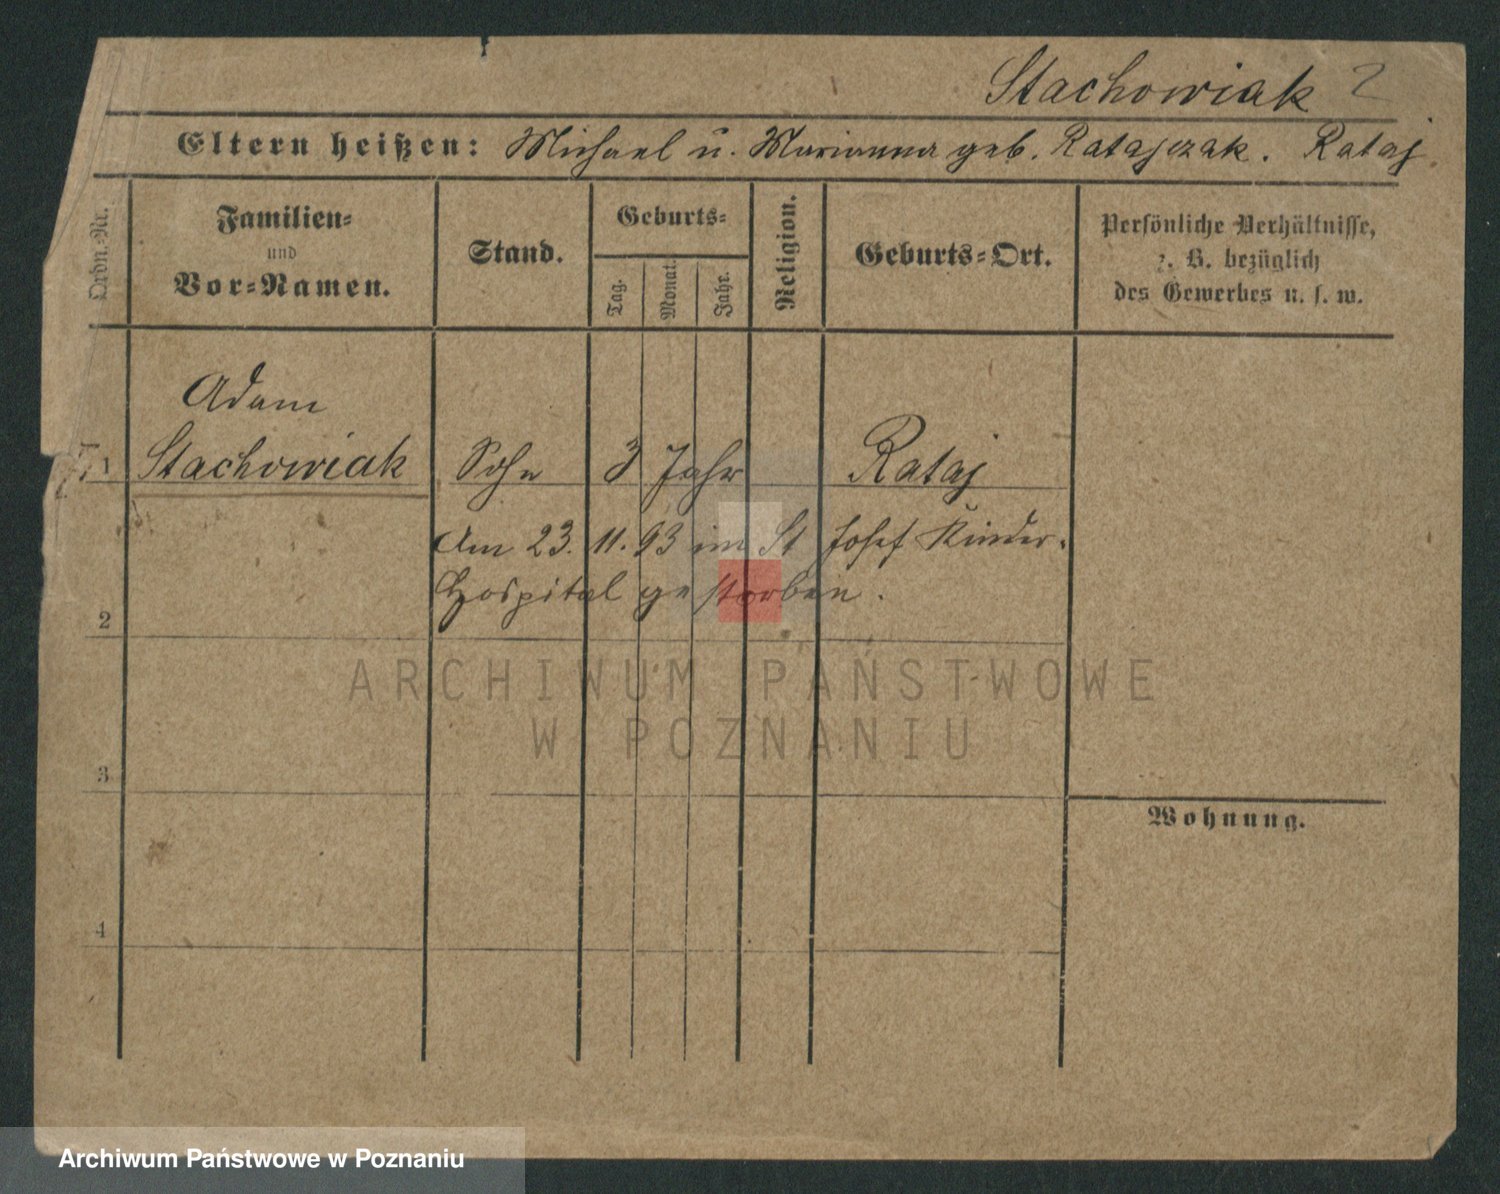 Stachowiak 2
Eltern heißen: Michael u. Marianna geb. Ratajczak. Rataj
Ordn.-Nr.
Familien-
und
Vor-Namen.
Stand.
Geburts-
Tag.
Monat.
Jahr.
Religion.
Geburts-Ort.
Persönliche Verhältnisse,
z. B. bezüglich
des Gewerbes u. s. w.
Adam
1 Stachowiak Sohn 3 Jahr Rataj
Am 23. 11. 93 im St Josef Kinder-
Hospital gestorben.
2
ARCHIWUM PAŃSTWOWE
W POZNANIU
3
Wohnung.
4
Archiwum Państwowe w Poznaniu